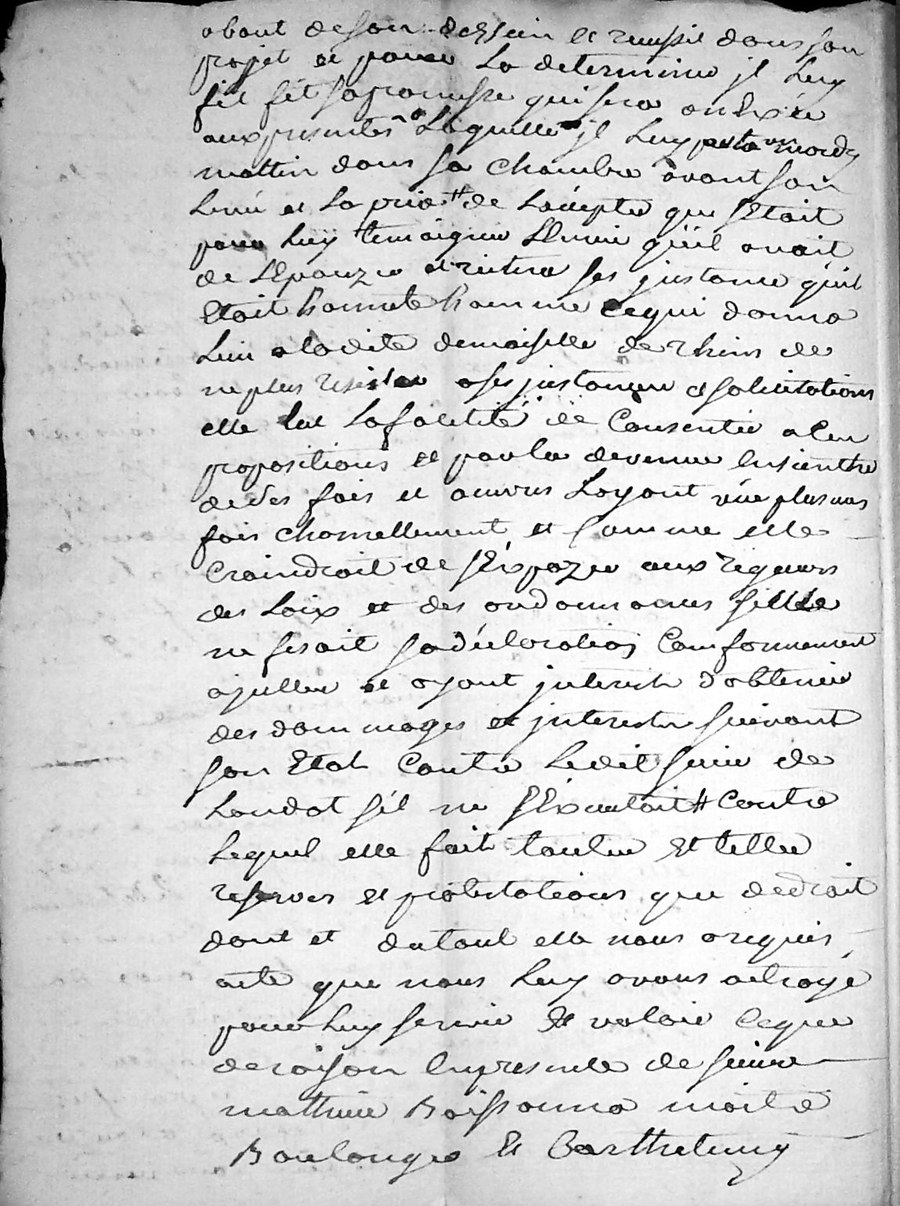 about de son dessein et reussir dans son
projet et pour la determiner jl luy
fit sa promesse qui sera anexée
aux presentes laquelle jl luy porta mardy
mattin dans sa chambre avant son
levé et la pria de laccepter que setait
pour luy temoigner lenvie quil avait
de lepouzer et reitera ses jnstance quil
etait honnete homme ce qui donna
lieu a ladite demoiselle de rhins de
ne plus resister a ses jnstances et solicitations
elle eut la facilité de consentir a ces
propositions et par la devenue ensienthe
de ses fais et oeuvres layant vüe plusieurs
fois charnellement et comme elle
craindrait de séxpozer aux rigeurs
des loix et des ordonnances si elle
ne fesait sa déclaration conformement
a jcelles et ayant jnterest dobtenir
des dommages et jnterests suivant
son etat contre ledit sieur de
Loudot sil ne séxecutait contre
lequel elle fait toutes et telles
reserves et protestations que de droit
dont et du tout elle nous a requis
acte que nous luy avons octroyé
pour luy servir et valoir ce que
de raison en presence de sieur
mathieu Boissonna maitre
Boulanger et Barthelemy